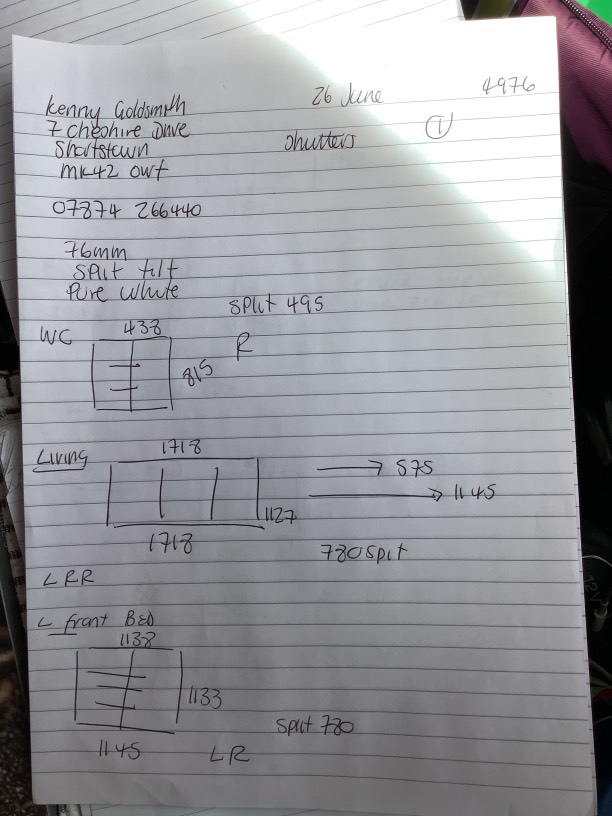 26 June 4976
Kenny Goldsmith
7 Cheshire Drive
Shutters 1
Shortstown
MK42 0WF
07874 266440
76mm
Split tilt
Pure white
Split 495
WC 438
R
815
Living 1718
575
1145
1127
1718
780 split
LRR
L front BED
1138
1133
Split 780
1145 LR